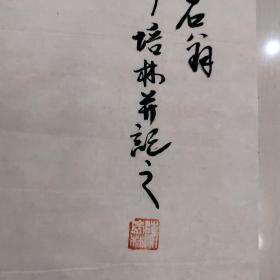 石翁
培林并記之